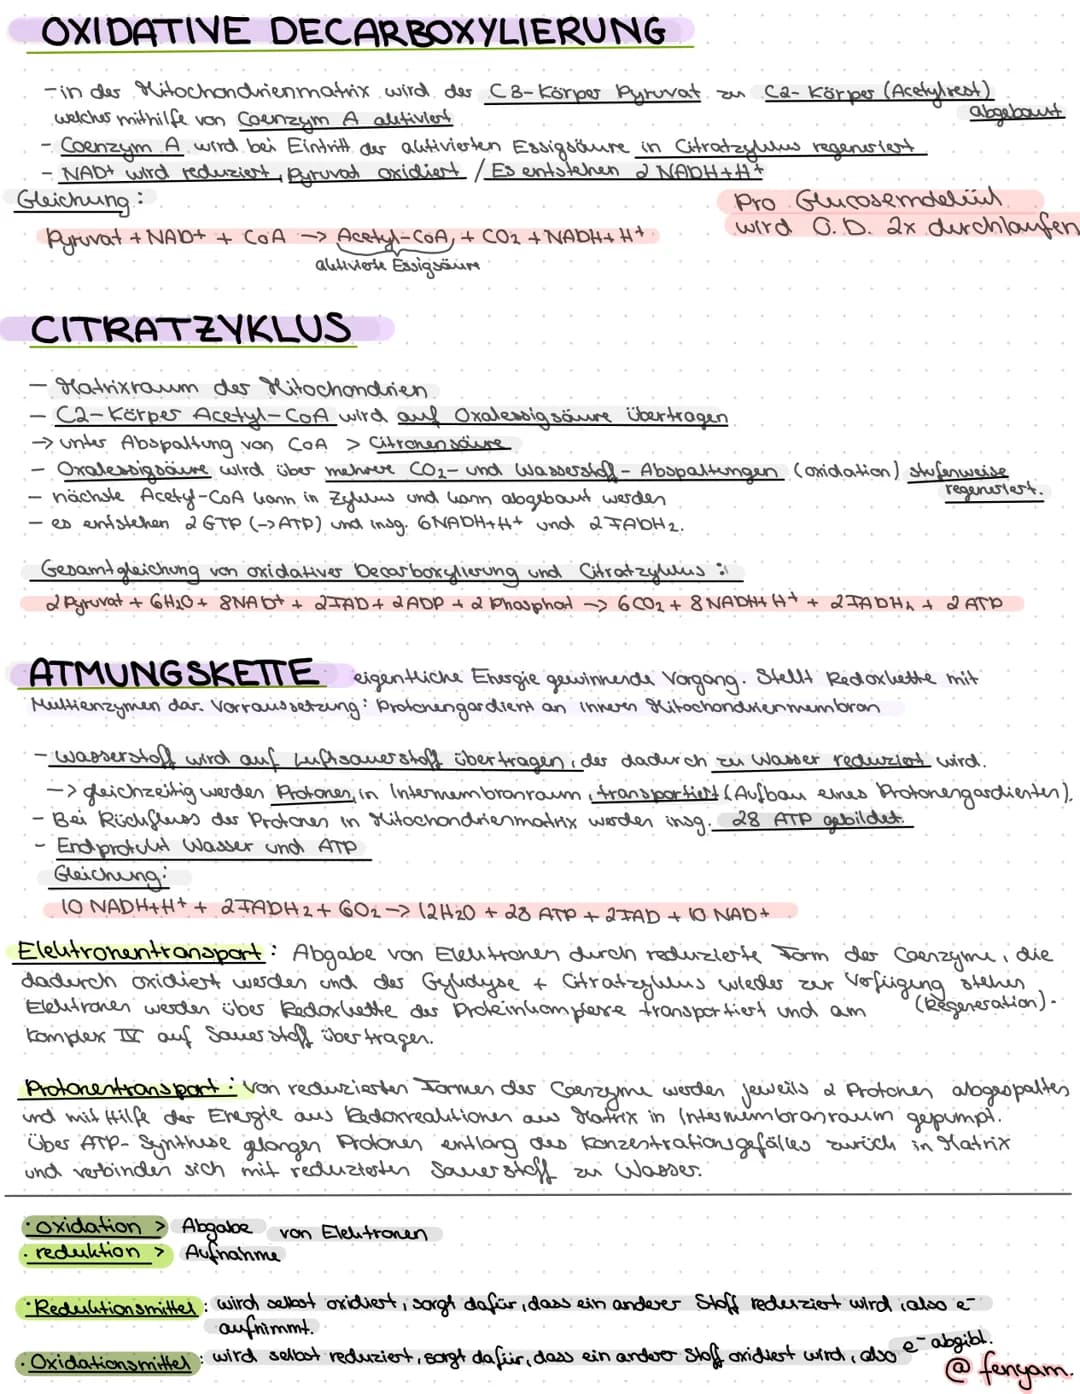 OXIDATIVE DECARBOXYLIERUNG
- in der Mitochondrienmatrix wird der C3-Körper Pyruvat zu C2-Körper (Acetylrest) abgebaut
welches mithilfe von Coenzym A aktiviert
- Coenzym A wird bei Eintritt der aktivierten Essigsäure in Citratzyklus regeneriert
- NAD+ wird reduziert, Pyruvat oxidiert / Es entstehen 2 NADH+H+
Gleichung:
Pyruvat + NAD+ + CoA -> Acetyl-CoA, + CO2 + NADH+H+
aktivierte Essigsäure
Pro Glucosemolekül
wird O.D. 2x durchlaufen
CITRATZYKLUS
- Matrixraum der Mitochondrien
- C2-Körper Acetyl-CoA wird auf Oxalessigsäure übertragen
-> unter Abspaltung von CoA > Citronensäure
- Oxalessigsäure wird über mehrere CO2- und Wasserstoff-Abspaltungen (oxidation) stufenweise
regeneriert.
- nächste Acetyl-CoA kann in Zyklus und kann abgebaut werden
- es entstehen 2 GTP (->ATP) und insg. 6NADH+H+ und 2FADH2.
Gesamtgleichung von oxidativer Decarboxylierung und Citratzyklus :
2 Pyruvat + 6H2O + 8NAD+ + 2FAD + 2ADP + 2 Phosphat -> 6CO2 + 8NADH+H+ + 2FADH2 + 2 ATP
ATMUNGSKETTE eigentliche Energie gewinnende Vorgang. Stellt Redoxkette mit
Multienzymen dar. Vorraussetzung: Protonengardient an inneren Mitochondrienmembran
- Wasserstoff wird auf Luftsauerstoff übertragen, der dadurch zu Wasser reduziert wird.
-> gleichzeitig werden Protonen in Intermembranraum transportiert (Aufbau eines Protonengardienten).
- Bei Rückfluss der Protonen in Mitochondrienmatrix werden insg. 28 ATP gebildet.
- Endprotukt Wasser und ATP
Gleichung:
10 NADH+H+ + 2FADH2 + 6O2 -> 12H2O + 28 ATP + 2FAD + 10 NAD+
Elektronentransport: Abgabe von Elektronen durch reduzierte Form der Coenzyme, die
dadurch oxidiert werden und der Gylkolyse + Citratzyklus wieder zur Verfügung stehen
(Regeneration).
Elektronen werden über Redoxkette der Proteinkomplexe transportiert und am
Komplex IV auf Sauerstoff übertragen.
Protonentransport: Von reduzierten Formen der Coenzyme werden jeweils 2 Protonen abgespalten
und mit Hilfe der Energie aus Redoxreaktionen aus Matrix in Intermembranraum gepumpt.
Über ATP-Synthese gelangen Protonen entlang des Konzentrationsgefälles zurück in Matrix
und verbinden sich mit reduzierten Sauerstoff zu Wasser.
· oxidation > Abgabe von Elektronen
· reduktion > Aufnahme
· Reduktionsmittel: wird selbst oxidiert, sorgt dafür, dass ein anderer Stoff reduziert wird, also e-
aufnimmt.
· Oxidationsmittel: wird selbst reduziert, sorgt dafür, dass ein anderer Stoff oxidiert wird, also e- abgibt.
@fenyam.